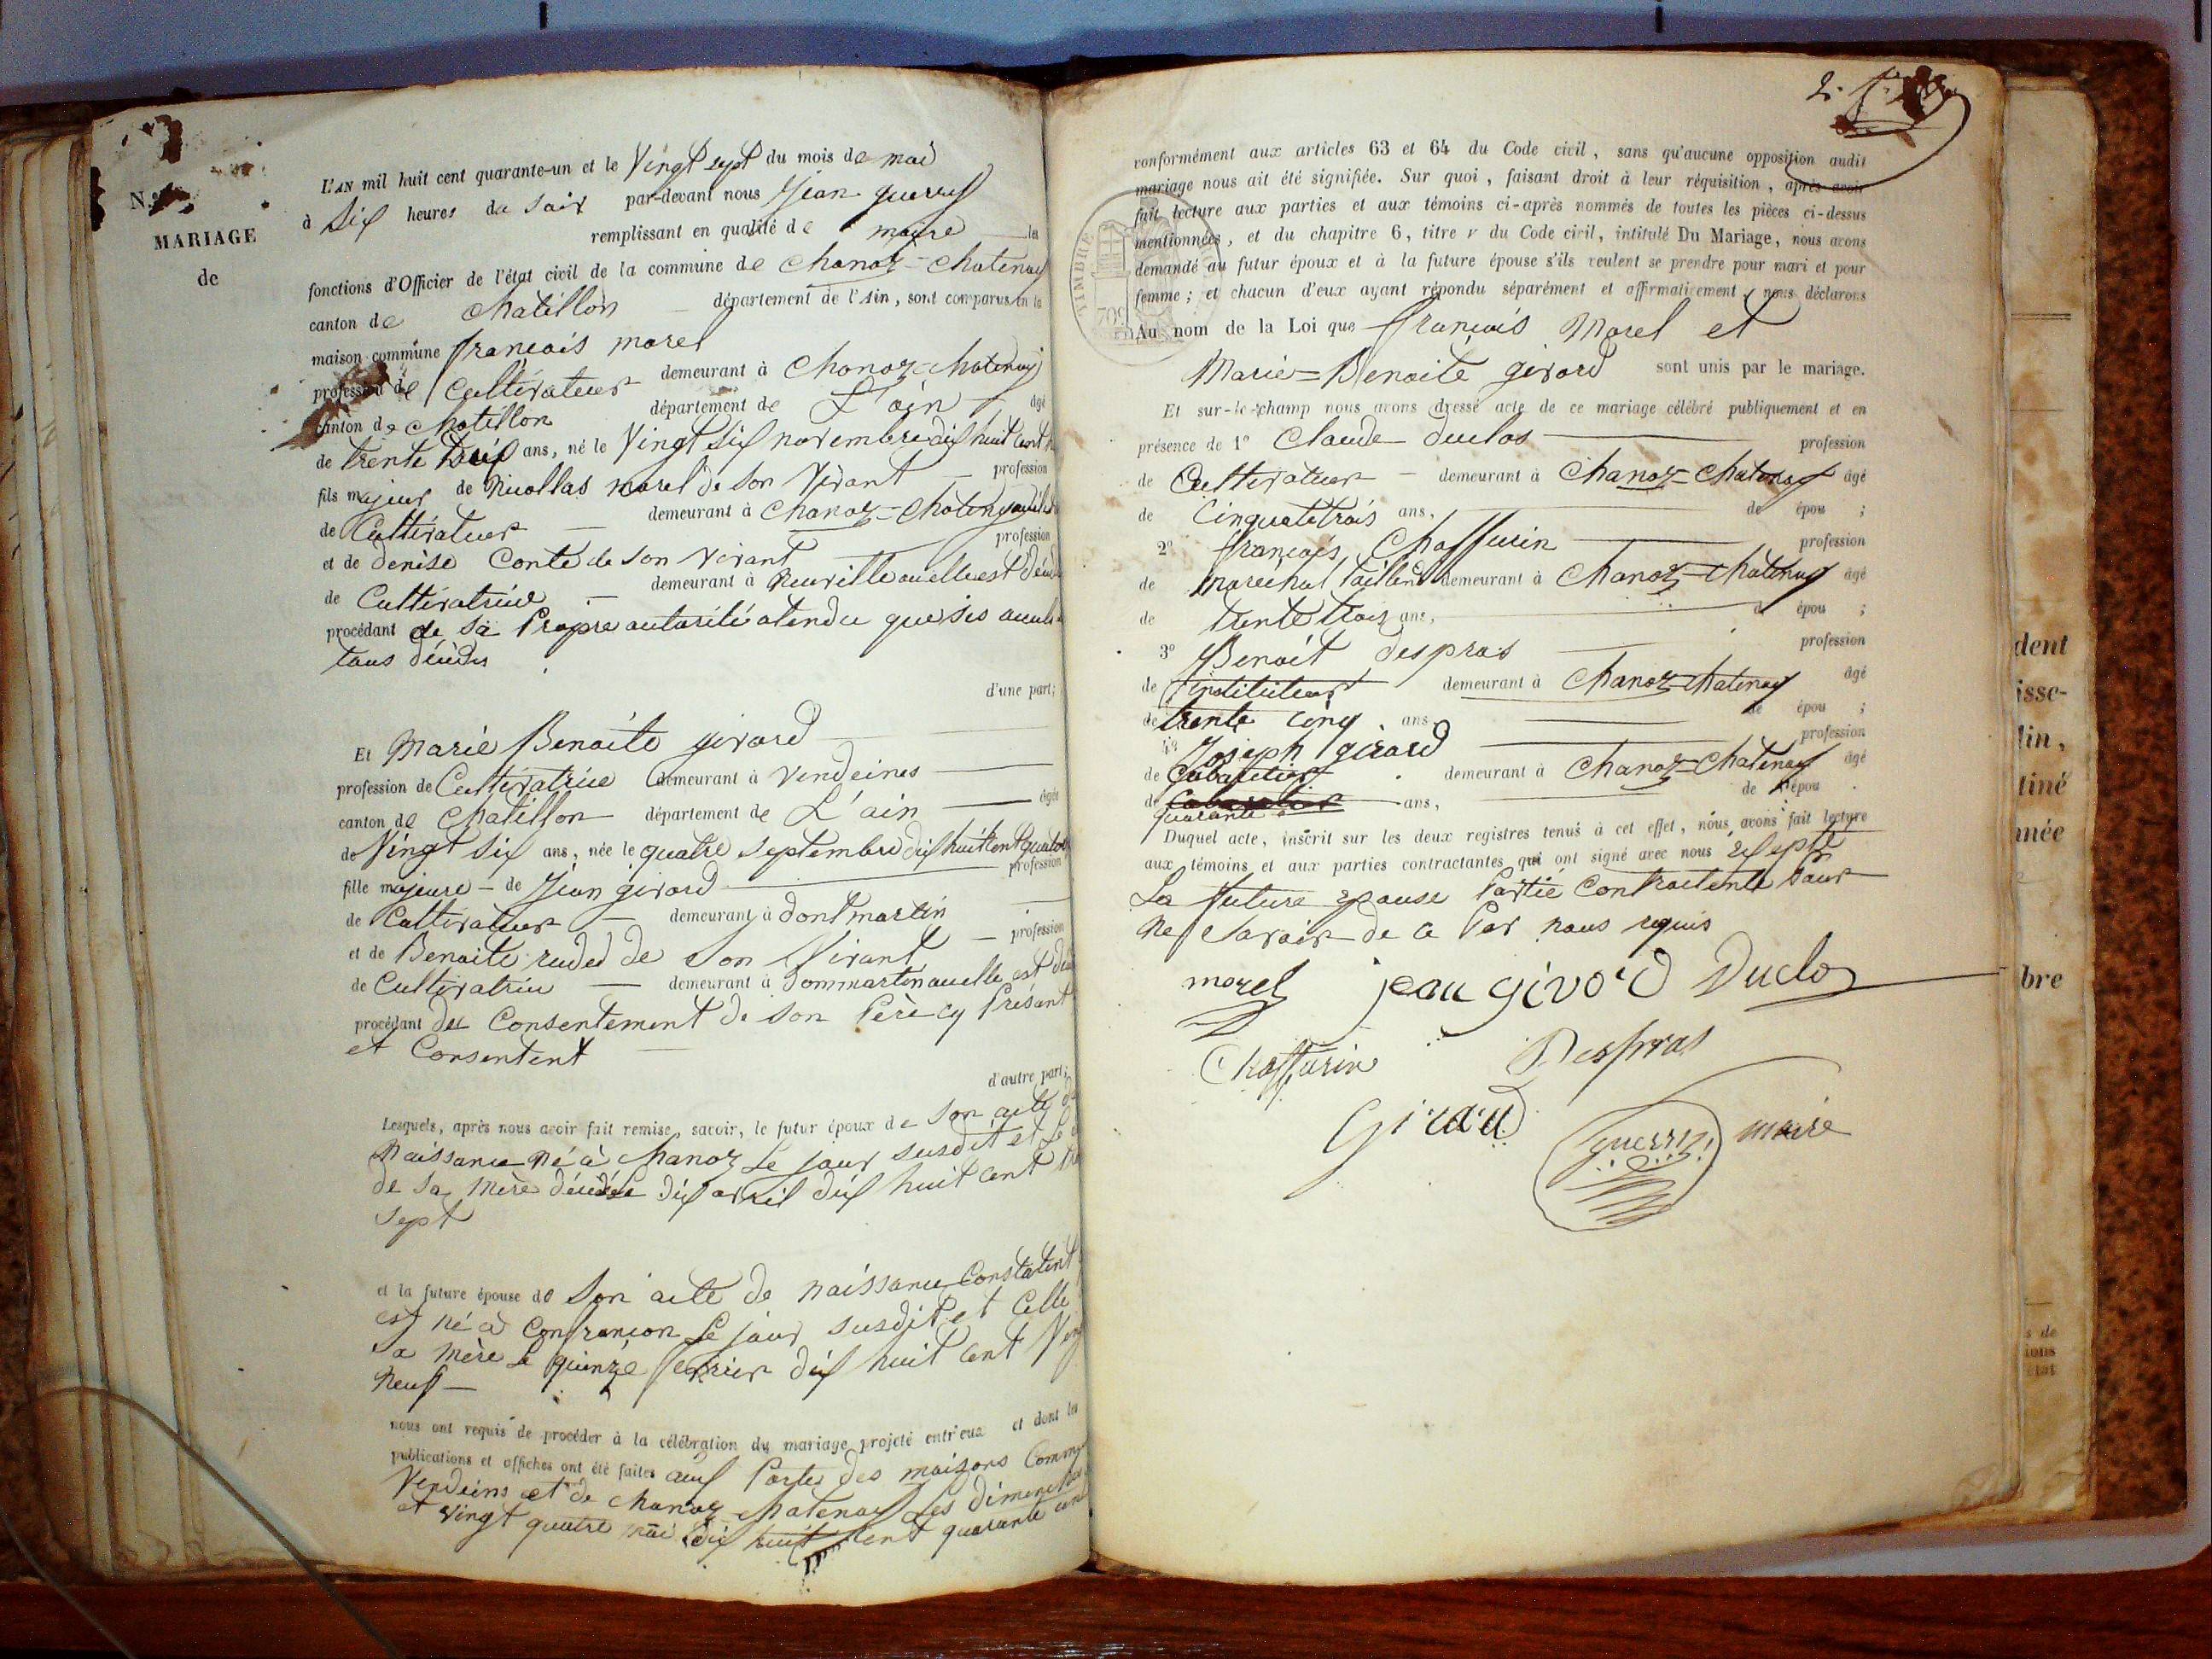 N.o
MARIAGE
de
L'AN mil huit cent quarante-un et le Vingt sept du mois de mai
à Six heures du Soir par-devant nous Jean guerry
remplissant en qualité de maire les
fonctions d'Officier de l'état civil de la commune de Chanoz-Chatenay
canton de Chatillon département de l'Ain, sont comparus en la
maison commune francois morel
profession de Cultivateur demeurant à Chanoz-Chatenay
canton de Chatillon département de L'ain âgé
de trente ans, né le Vingt Six novembre dix huit Cent
fils majeur de Nicollas morel de Son Vivant profession
de Cultivateur demeurant à Chanoz-Chatenay
et de denise Conte de Son Vivant profession
de Cultivatrice demeurant à Neuville ou elle est
procédant de Sa Propre autorité atendu que Ses
tous décédes
d'une part;
Et Marie Benoite girard
profession de Cultivatrice demeurant à Vendeines
canton de Chatillon département de L'ain âgée
de Vingt Six ans, née le quatre Septembre dix huit Cent
fille majeure de Jean girard profession
de Cultivateur demeurant à dont martin
et de Benoite de Son Vivant profession
de Cultivatrice demeurant à dommartin ou elle est
procédant du Consentement de Son Père cy Présant
et Consentent
d'autre part;
Lesquels, après nous avoir fait remise, savoir, le futur époux de Son acte de
Naissance Né à Chanoz Le jour Susdit et
de Sa Mère décédée Le dix avril dix huit Cent
Sept
et la future épouse de Son acte de naissance Constatent
est né à Confrançon Le jour Susdit et Celle
Sa mère Le quinze fevrier dix huit Cent
Neuf
nous ont requis de procéder à la célébration du mariage projeté entr'eux et dont les
publications et affiches ont été faites aux Portes des maisons
Vendeins et de Chanoz Chatenay Les
et Vingt quatre mai dix huit Cent quarante
2.
conformément aux articles 63 et 64 du Code civil, sans qu'aucune opposition audit
mariage nous ait été signifiée. Sur quoi, faisant droit à leur réquisition, après avoir
fait lecture aux parties et aux témoins ci-après nommés de toutes les pièces ci-dessus
mentionnées, et du chapitre 6, titre v du Code civil, intitulé Du Mariage, nous avons
demandé au futur époux et à la future épouse s'ils veulent se prendre pour mari et pour
femme; et chacun d'eux ayant répondu séparément et affirmativement, nous déclarons
TIMBRE
Au nom de la Loi que francois Morel et
Marie=Benoite girard sont unis par le mariage.
Et sur-le-champ nous avons dressé acte de ce mariage célébré publiquement et en
présence de 1º Claude duclos profession
de Cultivateur demeurant à Chanoz-Chatenay âgé
de Cinquate trois ans, de épou ;
2º francois Chaffurin profession
de marechal taillendi demeurant à Chanoz-Chatenay âgé
de trente trois ans, d épou ;
3º Benoit despras profession
de instituteur demeurant à Chanoz-Chatenay âgé
de trente cinq ans, de épou ;
4º Joseph girard profession
de Cabaretier demeurant à Chanoz-Chatenay âgé
de ans, de épou
quarante
Duquel acte, inscrit sur les deux registres tenus à cet effet, nous avons fait lecture
aux témoins et aux parties contractantes qui ont signé avec nous
La future epouse Partie Contractente Pour
Ne Savoir de ce Par nous requis
morel jean givord Duclos
Chaffurin Despras
Giraud guerry maire
dent
isse-
lin,
tiné
nnée
bre
s de
ions
état